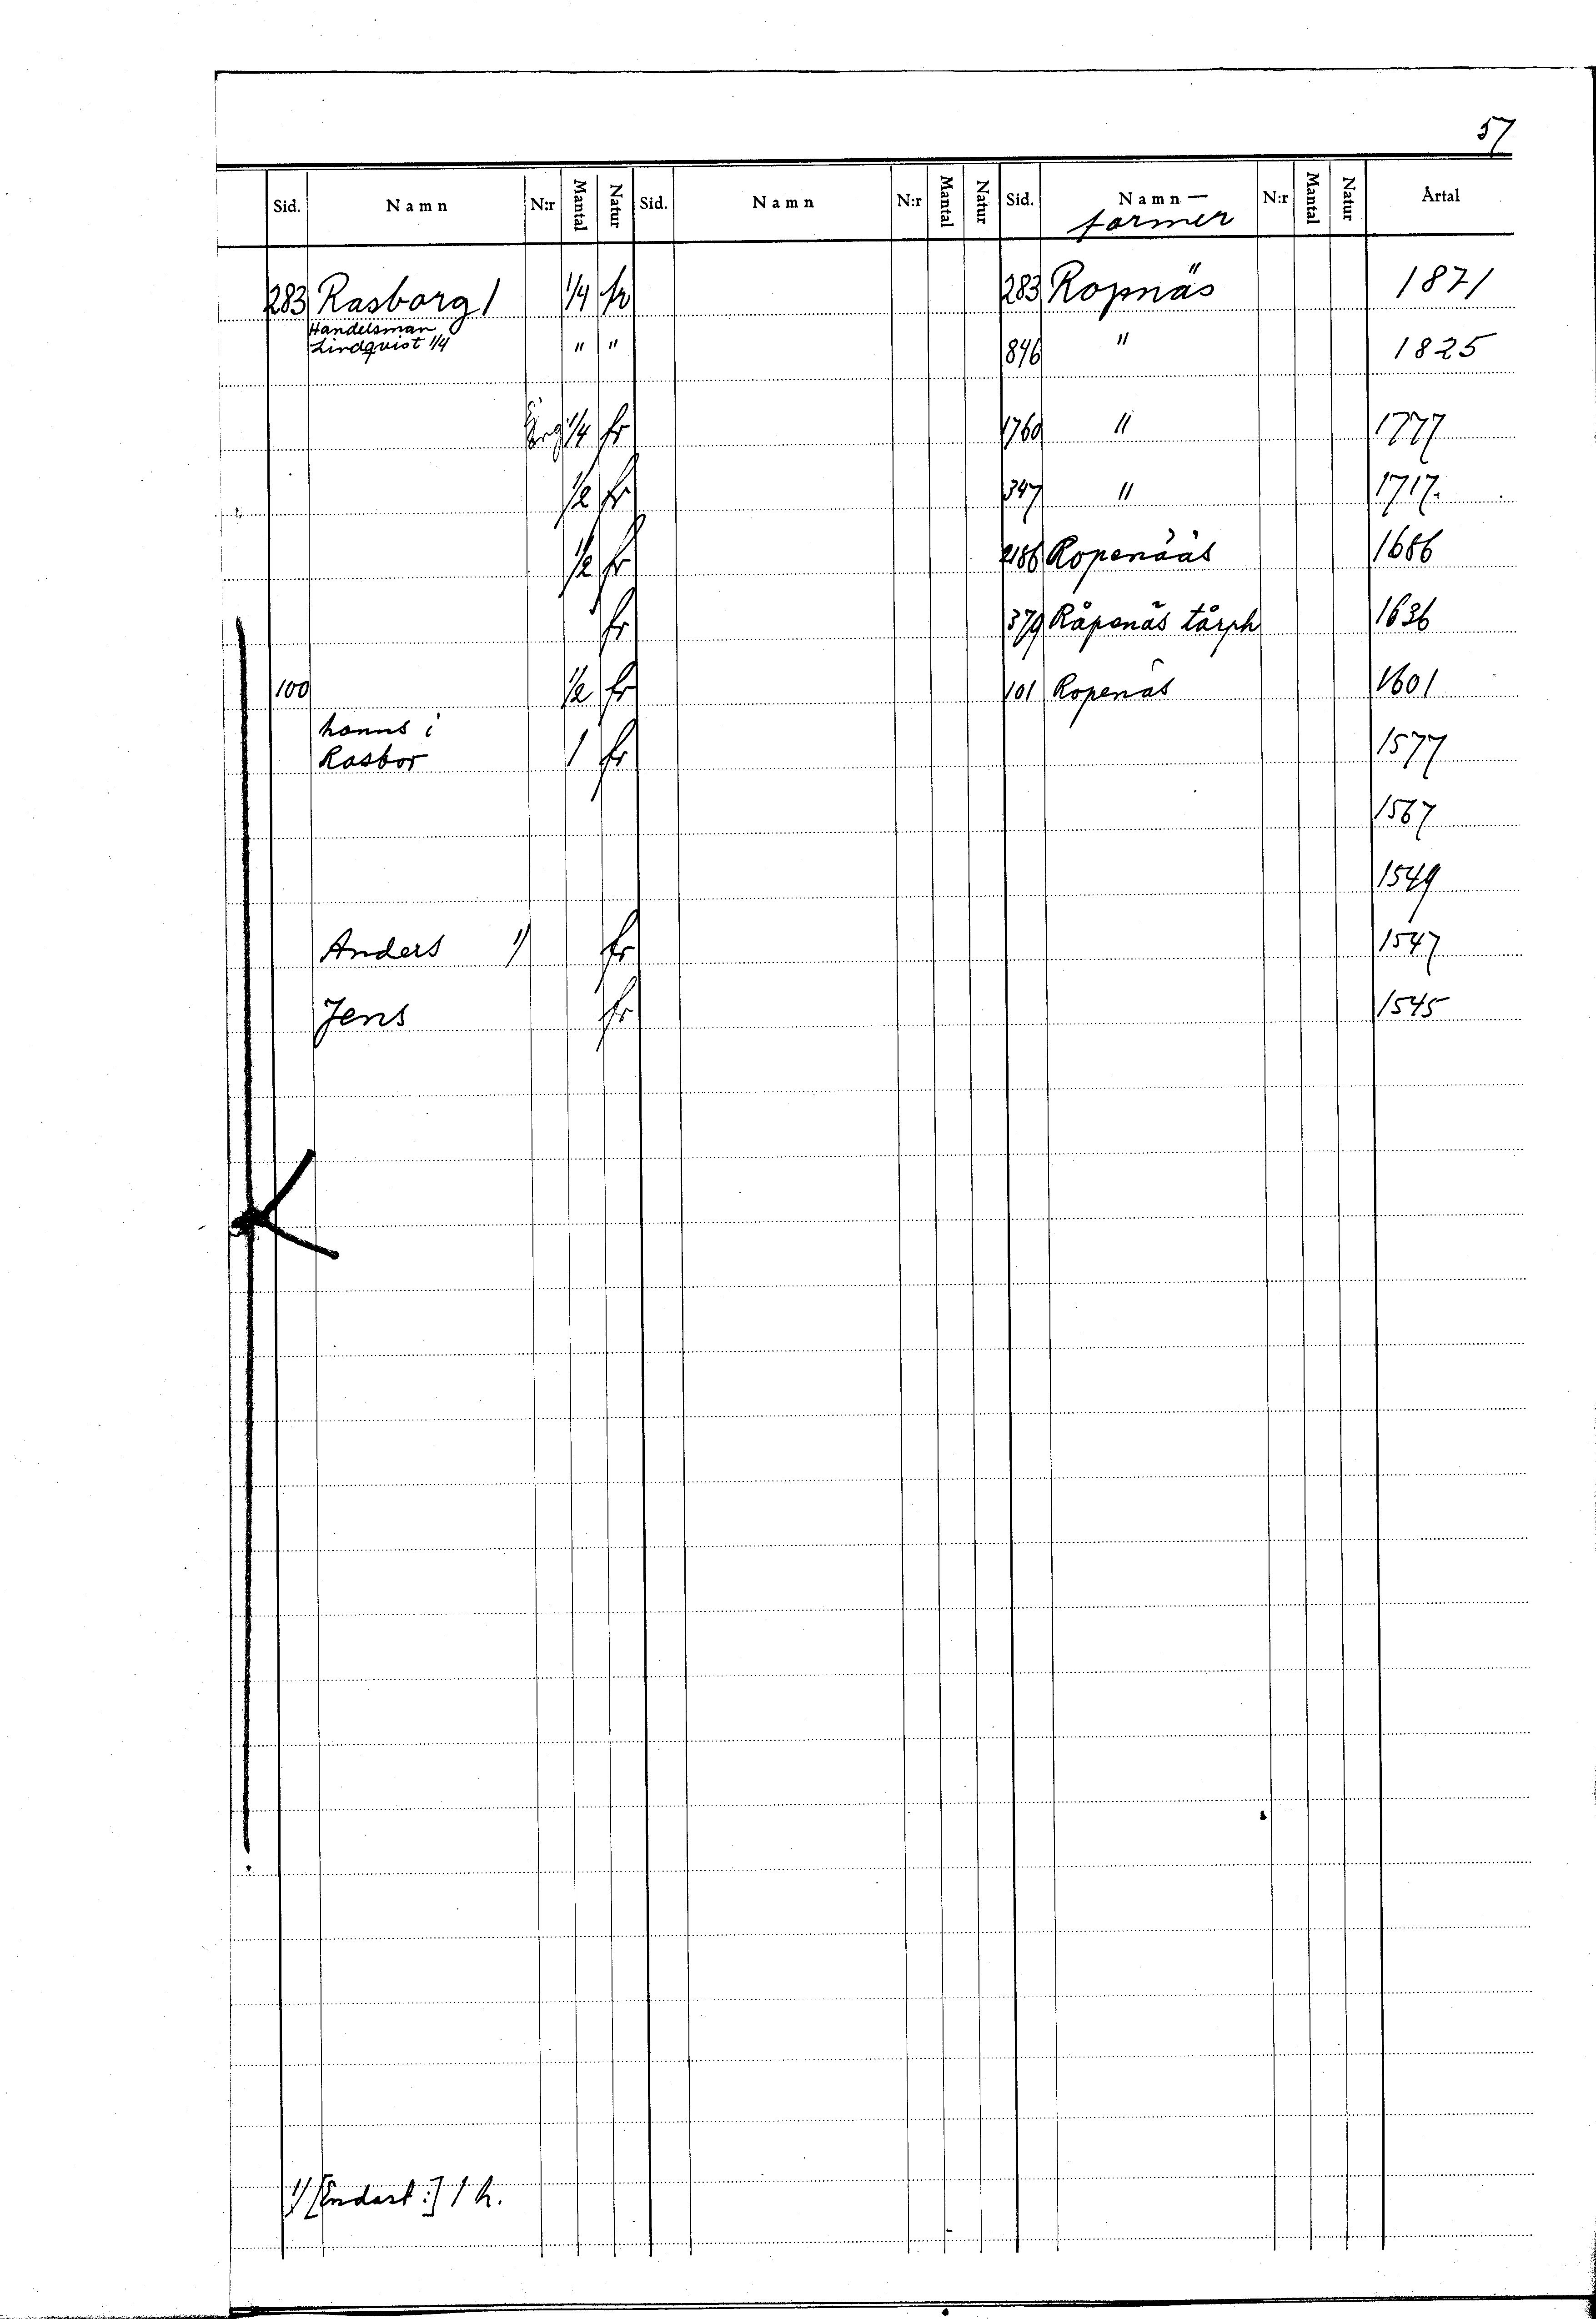 57
Sid. Namn N:r Mantal Natur Sid. Namn N:r Mantal Natur Sid. Namn — former N:r Mantal Natur Årtal
283 Rasborg 1 1/4 fr 283 Ropnäs 1871
Handelsman
Lindquist 1/4 " " 846 " 1825
1/4 fr 1760 " 1777
1/2 fr 347 " 1717
1/2 fr 2186 Ropenääs 1686
fr 379 Råpenäs tårph 1636
100 1/2 fr 101 Ropenäs 1601
hanns i
Rasbor 1 fr 1577
1567
1549
Anders 1) fr 1547
Jens fr 1545
1) [Endast:] 1 h.